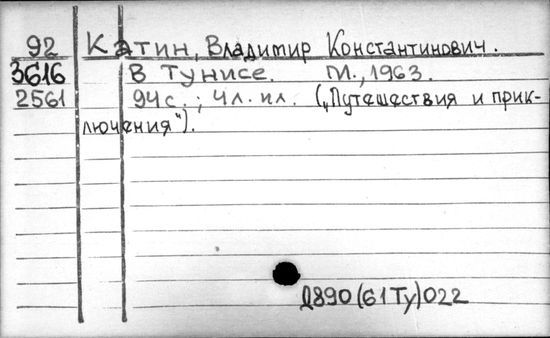 92 Катин, Владимир Константинович.
3616 В Тунисе. М., 1963.
2561 94с.; 4л. ил. („Путешествия и прик-
лючения").
Д890(61Ту)022